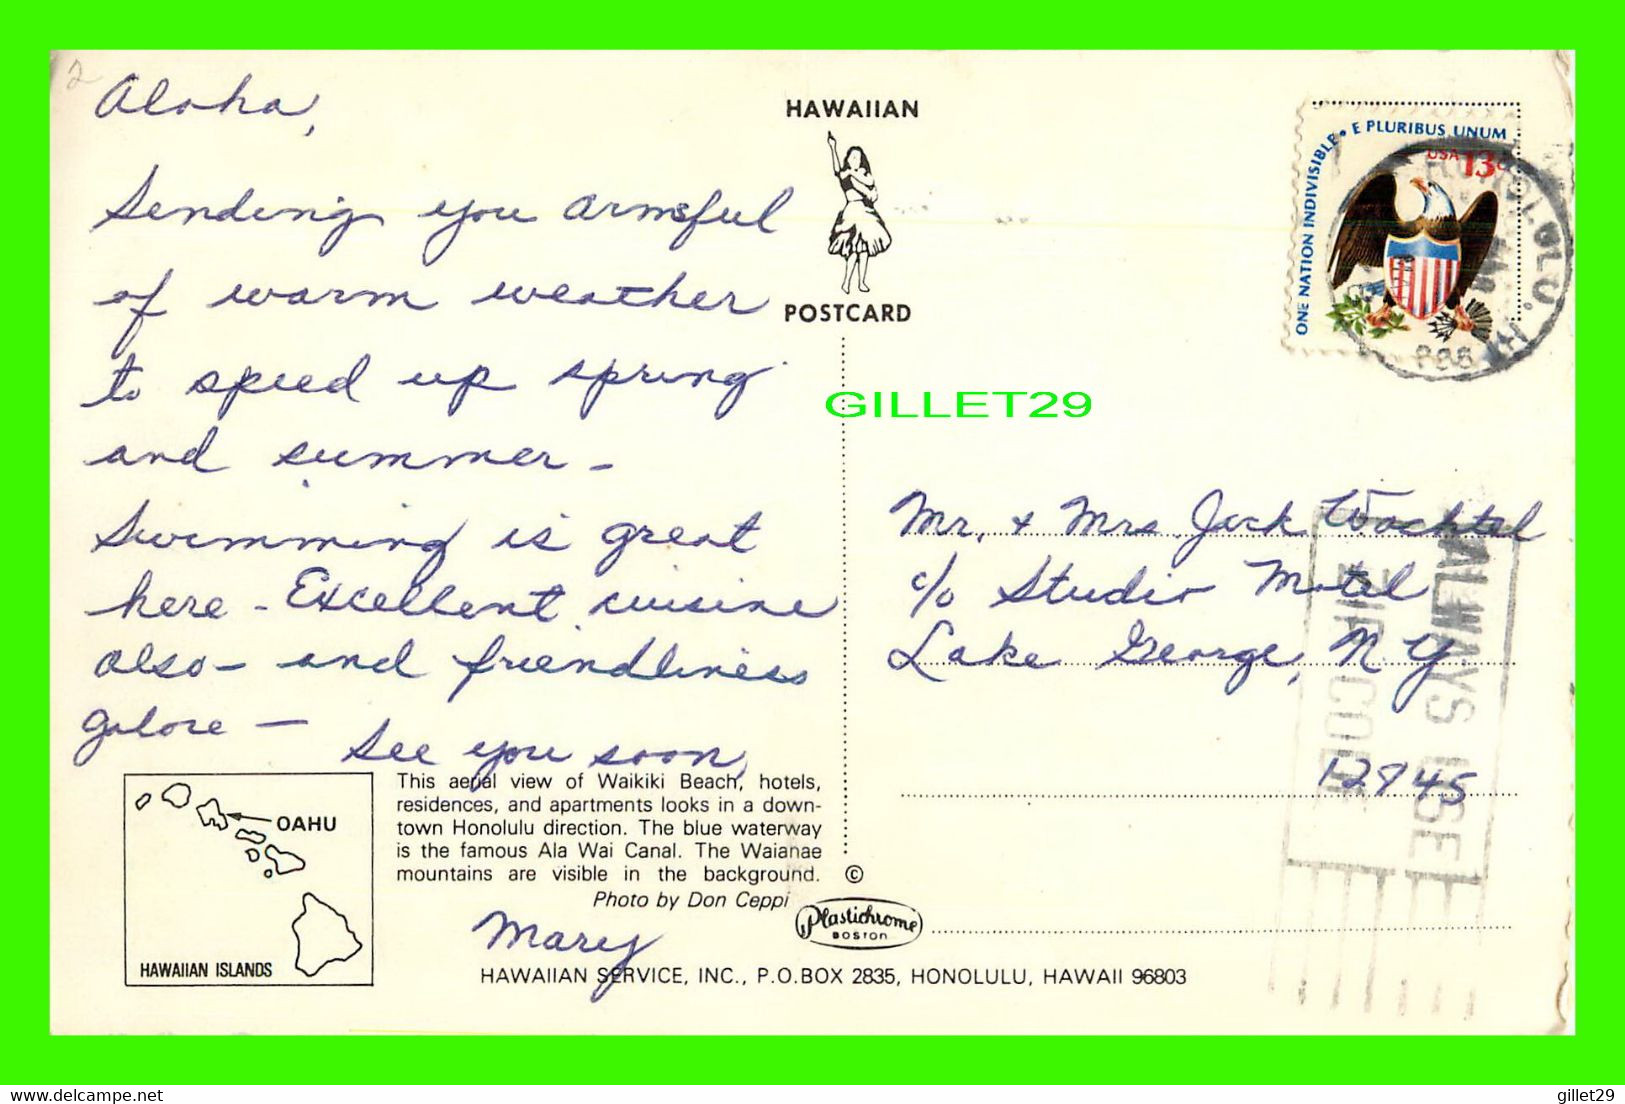 2
Aloha,
Sending you armsful
of warm weather
to speed up spring
and summer -
Swimming is great
here - Excellent cuisine
also - and friendliness
galore -
See you soon,
Mary
HAWAIIAN
POSTCARD
GILLET29
ONE NATION INDIVISIBLE • E PLURIBUS UNUM
USA 13c
HONOLULU, HI
968
Mr. & Mrs Jack Wachtel
c/o Studio Motel
Lake George, N Y
12845
ALWAYS USE
ZIP CODE
OAHU
HAWAIIAN ISLANDS
This aerial view of Waikiki Beach, hotels,
residences, and apartments looks in a down-
town Honolulu direction. The blue waterway
is the famous Ala Wai Canal. The Waianae
mountains are visible in the background.
Photo by Don Ceppi
©
Plastichrome
BOSTON
HAWAIIAN SERVICE, INC., P.O.BOX 2835, HONOLULU, HAWAII 96803
https://www.delcampe.net
gillet29